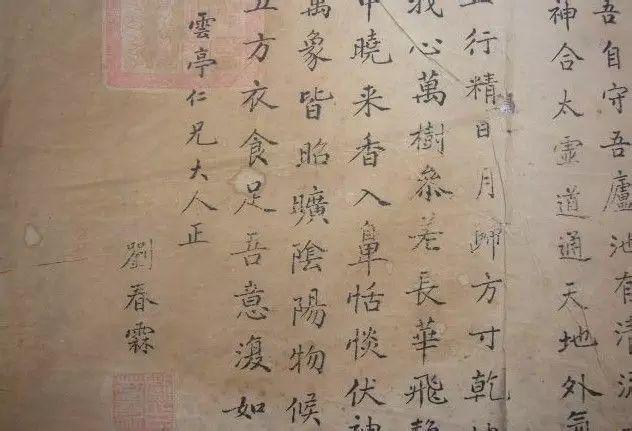 吾自守吾廬池有清流
神合太霊道通天地外氣
行精日月歸方寸乾
我心萬樹叅差長華飛
中曉来香入鼻恬惔伏神
萬象皆昭曠陰陽物候
五方衣食足吾意澓如
雲亭仁兄大人正
劉春霖